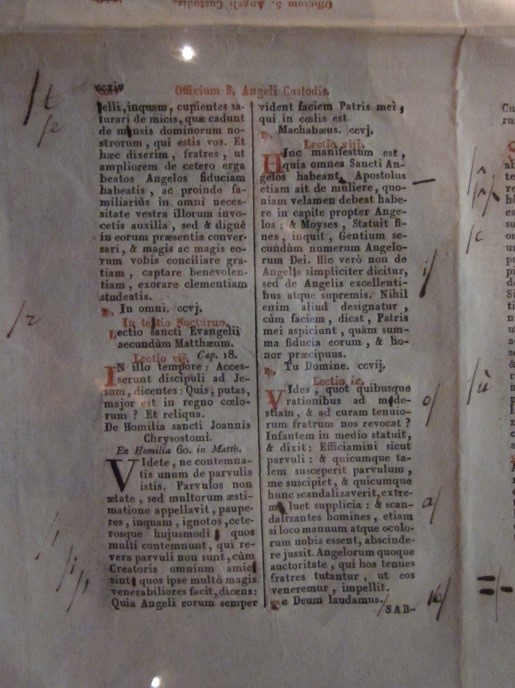 Officium S. Angeli Custodis
ccxiv
Officium S. Angeli Custodis.
elli, inquam, cupientes sa-
turari de micis, quæ cadunt
de mensis dominorum no-
strorum, qui estis vos. Et
hæc dixerim, fratres, ut
ampliorem de cetero erga
beatos Angelos fiduciam
habeatis, ac proinde fa-
miliariùs in omni neces-
sitate vestra illorum invo-
cetis auxilia, sed & dignè
in eorum præsentia conver-
sari, & magis ac magis eo-
rum vobis conciliare gra-
tiam, captare benevolen-
tiam, exorare clementiam
studeatis.
℟. In omni. ccvj.
In tertio Nocturno.
Lectio sancti Evangelii
secundùm Matthæum.
Lectio vij. Cap. 18.
IN illo tempore: Acces-
serunt discipuli ad Je-
sum, dicentes: Quis, putas,
major est in regno cœlo-
rum? Et reliqua.
De Homilia sancti Joannis
Chrysostomi.
Ex Homilia 60. in Matth.
VIdete, ne contemna-
tis unum de parvulis
istis. Parvulos non
ætate, sed multorum æsti-
matione appellavit, paupe-
res, inquam, ignotos, cete-
rosque hujusmodi quos
multi contemnunt, qui re-
vera parvuli non sunt, cùm
Creatoris omnium amici
sint quos ipse multò magis
venerabiliores facit, dicens:
Quia Angeli eorum semper
vident faciem Patris mei,
qui in cœlis est.
℟. Machabæus. ccvj.
Lectio viij.
HInc manifestum est,
quia omnes Sancti An-
gelos habeant. Apostolus
etiam ait de muliere, quo-
niam velamen debeat habe-
re in capite propter Ange-
los: & Moyses, Statuit fi-
nes, inquit, Gentium se-
cundùm numerum Angelo-
rum Dei. Hic verò non de
Angelis simpliciter dicitur,
sed de Angelis excellenti-
bus atque supremis. Nihil
enim aliud designatur,
cùm faciem, dicat, Patris
mei aspiciunt, quàm sum-
ma fiducia eorum, & ho-
nor præcipuus.
℟. Tu Domine. ccvij.
Lectio ix.
VIdes, quot quibusque
rationibus ad mode-
stiam, & ad curam tenuio-
rum fratrum nos revocat?
Infantem in medio statuit,
& dixit: Efficiamini sicut
parvuli: & quicumque ta-
lem susceperit parvulum,
me suscipiet, & quicumque
hunc scandalizaverit, extre-
ma luet supplicia: & scan-
dalizantes homines, etiam
si loco manuum atque oculo-
rum nobis essent, abscinde-
re jussit. Angelorum quoque
auctoritate, qui hos tenues
fratres tutantur, ut eos
veneremur, impellit.
Te Deum laudamus.
SAB-